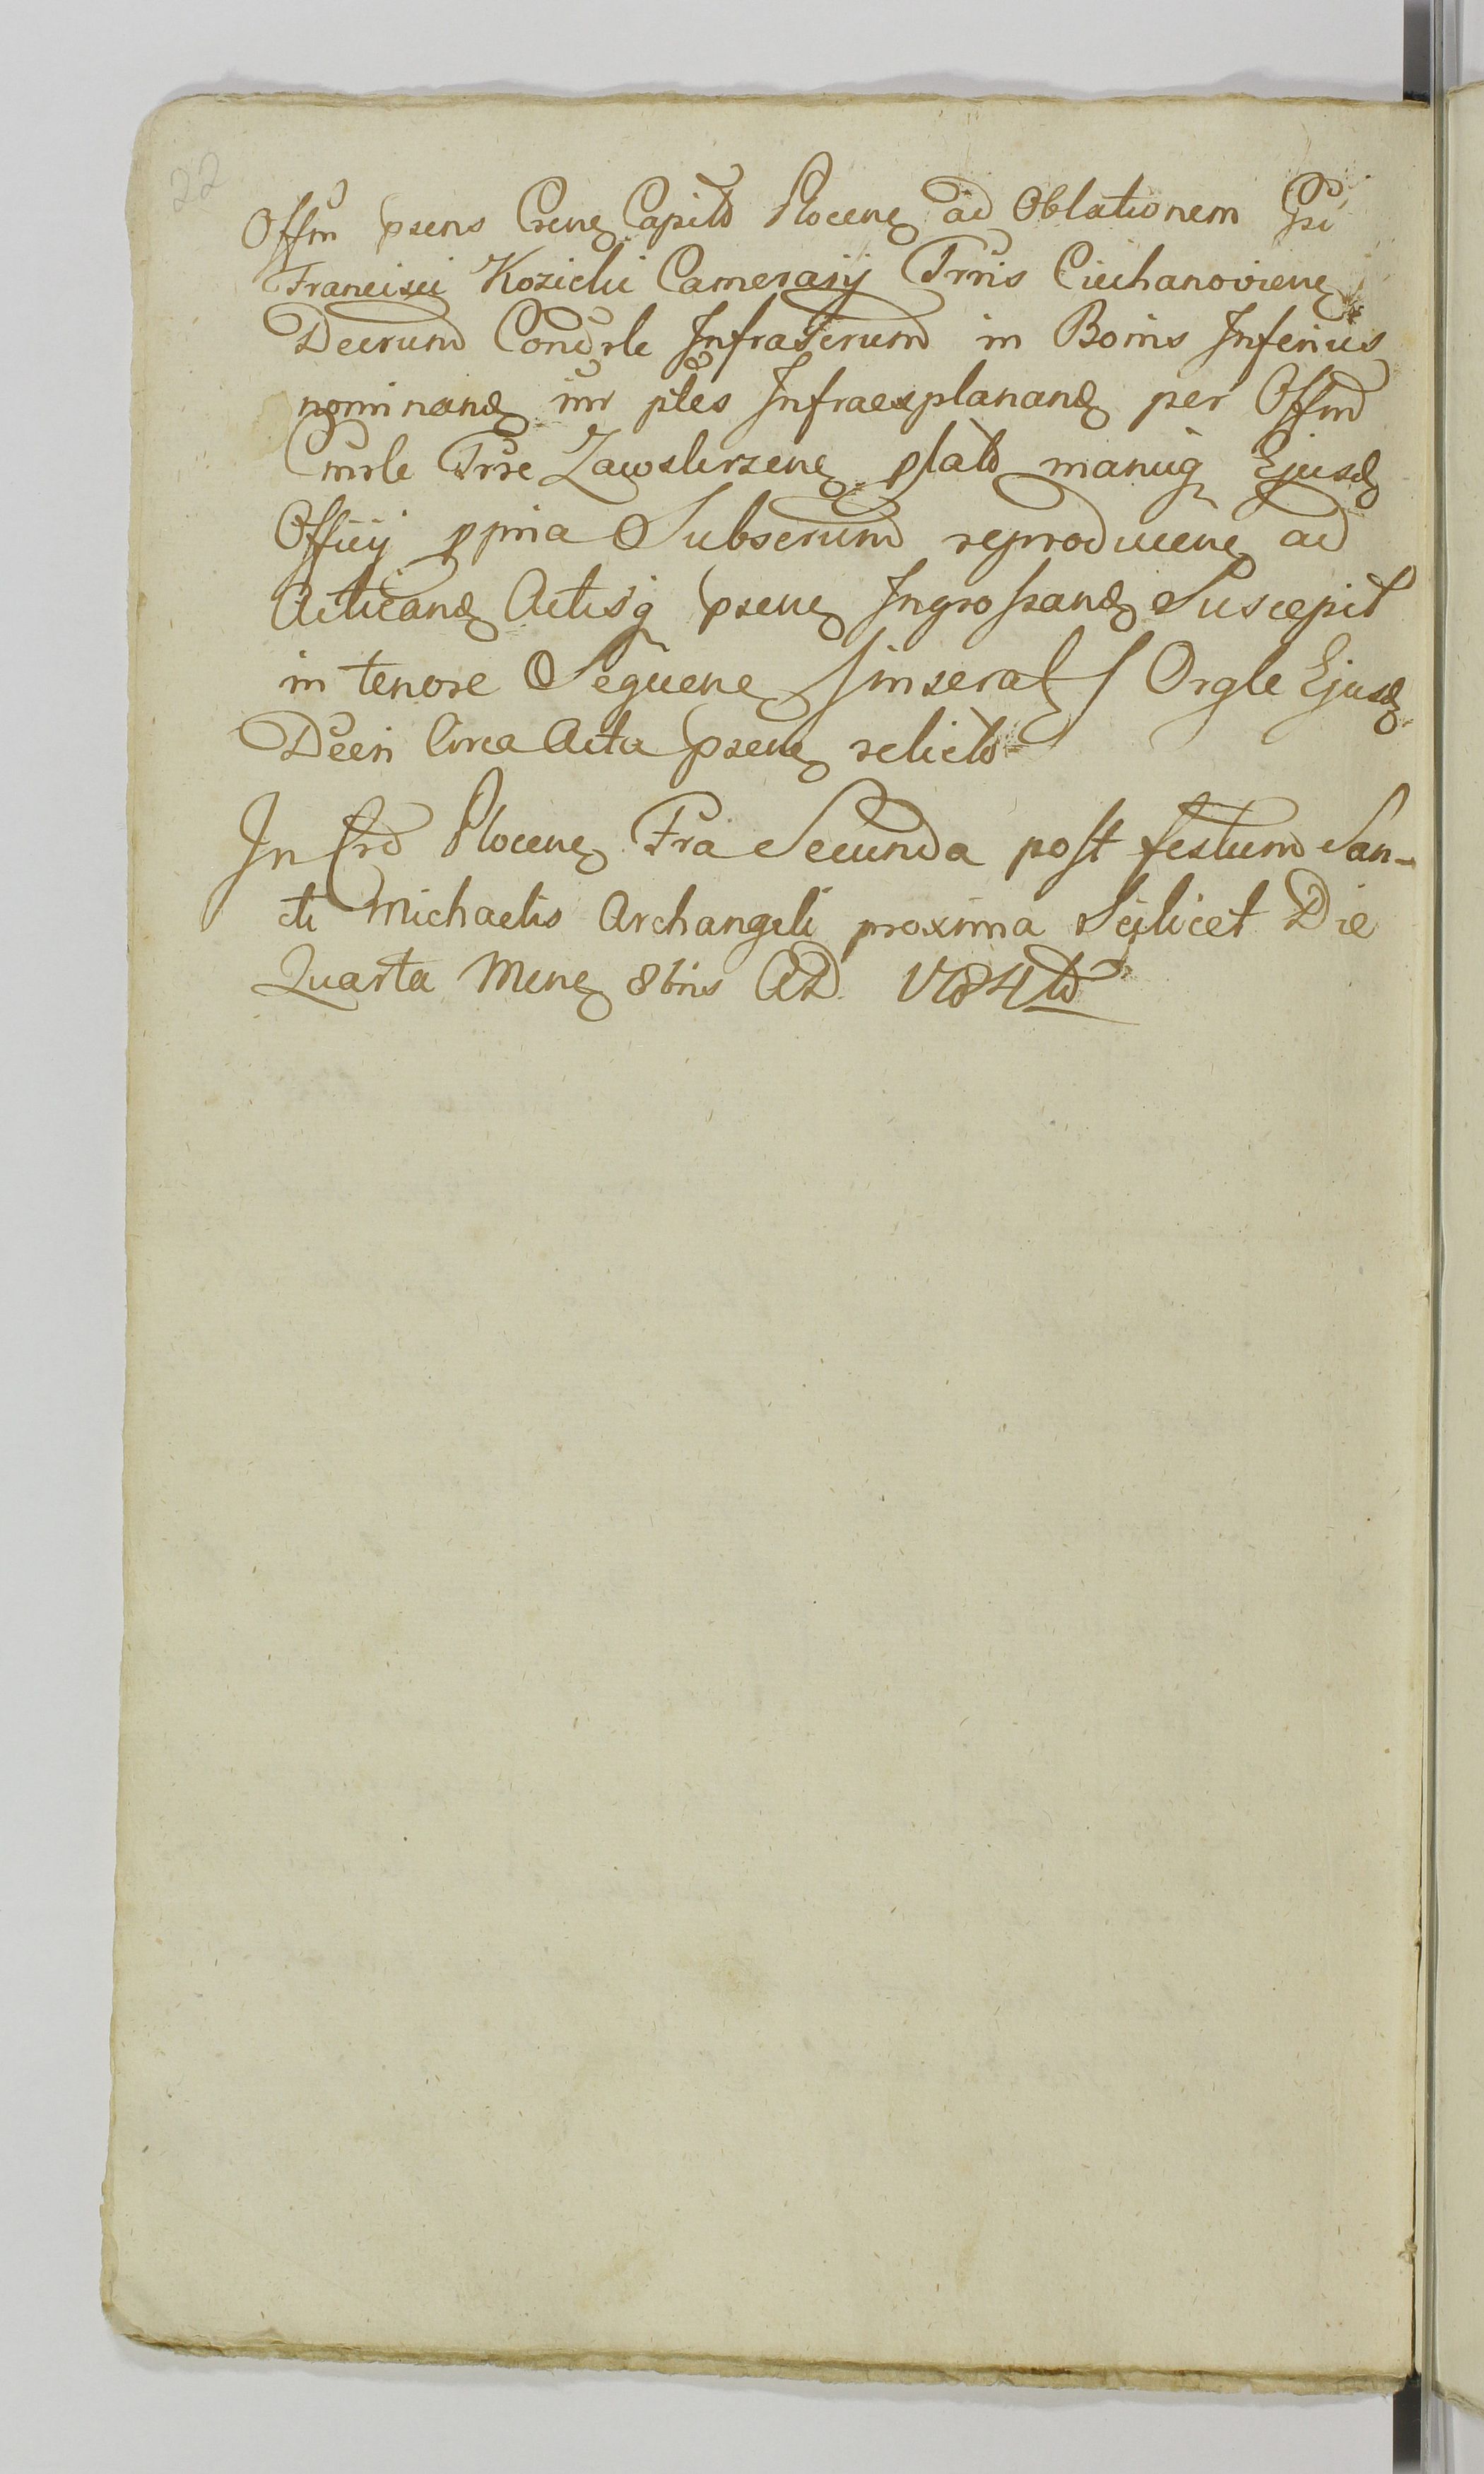 22
Offm psens Crene Capitl Plocene ad Oblationem Gsi
Francisci Kozicki Camerarij Trris Ciechanoviene
Decrum Condrle Infrascrum in Bonis Inferius
nominand inr ptes Infraexplanand per Offm
Cmrle Trre Zawskrzene plat manuq Ejusd
Officij ppria Subscrum reproducene ad
Acticand Actisq psene Ingrossand Suscepit
in tenore Sequene / inserat / Orgle Ejusd
Decri Circa Acta psene relicto
In Crd Plocene Fra Secunda post festum San-
cti Michaelis Archangeli proxima Scilicet Die
Quarta Mene 8bris AD 1784to